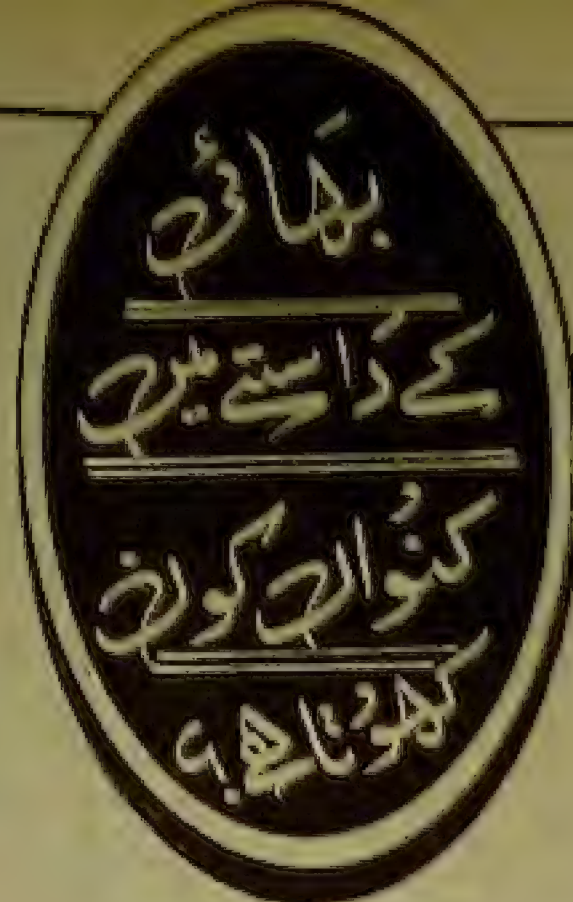 بھَائی
کے رَاستے میں
کنُواں کون
کھوُتا ھے ؟